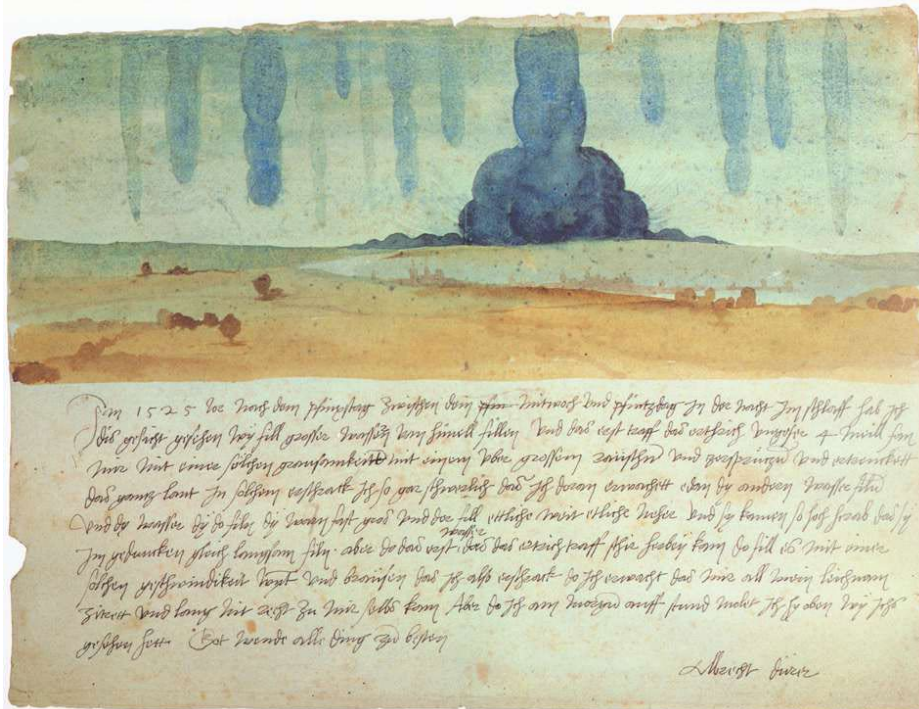 Im 1525 Jor nach dem pfinxstag zwischen dem Mitwoch und pfintzdag in der nacht im schlaff hab ich
dis gesicht gesehen wy fill grosser wassern vom himell fillen Und das erst traff das erthrich ungefer 4 meill fan
mir mit einer solchen grausamkeitt mit einem uber grossem raüschn und zersprützn und ertrenckett
das gantz lant In solchem erschrack ich so gar schwerlich das ich doran erwachett edan dy andern wasser filn
Und dy wasser dy do filn dy warn fast gros und der fill ettliche weit etliche neher und sy kamen so hoch herab das sy
im gedancken gleich langsam filn. aber do das erst wasser das das ertrich traff schir herbey kam do fill es mit einer
solchen geschwindikeit wynt und braüsen das ich also erschrack do ich erwacht das mir all mein leichnam
zitrett und lang nit recht zu mir selbs kam Aber do ich am morgn auff stund molet ich hy oben wy ichs
gesehen hett. Got wende alle ding zu besten
Albrecht dürer